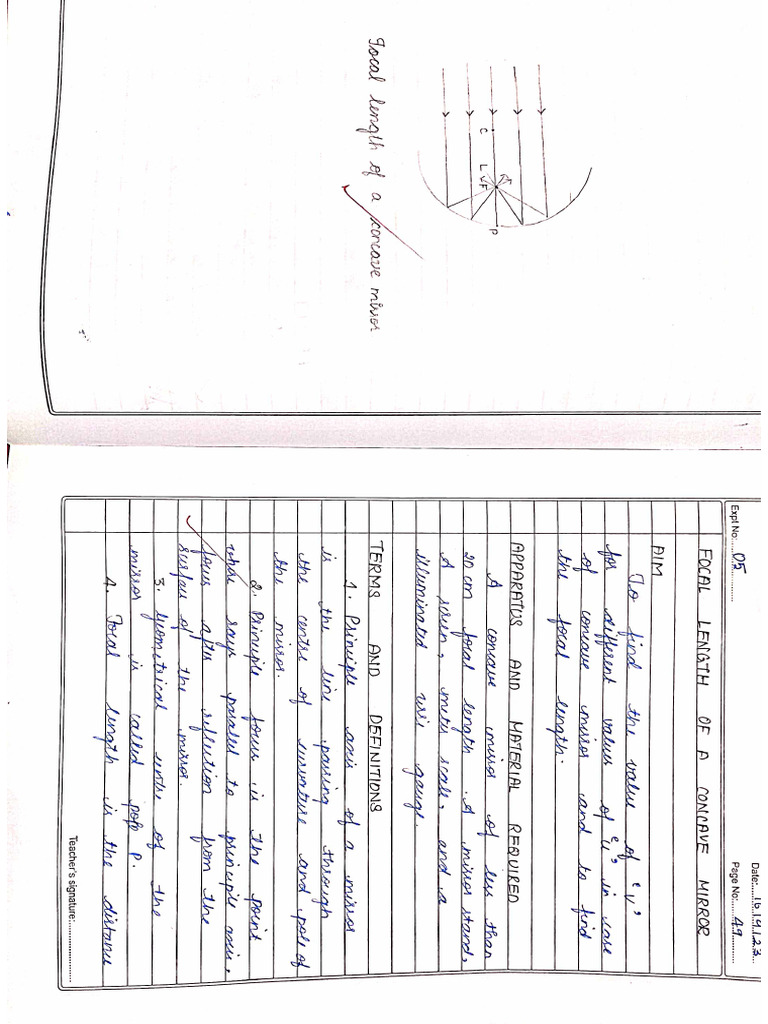 C
F
P
Focal length of a concave mirror
Date:....16.9.23...
Expt No:...... 05 ..........
Page No:... 49 .......
FOCAL LENGTH OF A CONCAVE MIRROR
AIM
To find the value of 'v'
for different values of 'u' in case
of concave mirror and to find
the focal length.
APPARATUS AND MATERIAL REQUIRED
A concave mirror of less than
20 cm focal length. A mirror stand,
A screen, meter scale, and a
illuminated wire gauge.
TERMS AND DEFINITIONS
1. Principle axis of a mirror
is the line passing through
the centre of curvature and pole of
the mirror.
2. Principle focus is the point
where rays parallel to principle axis,
focus after reflection from the
surface of the mirror.
3. Geometrical centre of the
mirror is called pole P.
4. Focal length is the distance
Teacher's signature:................